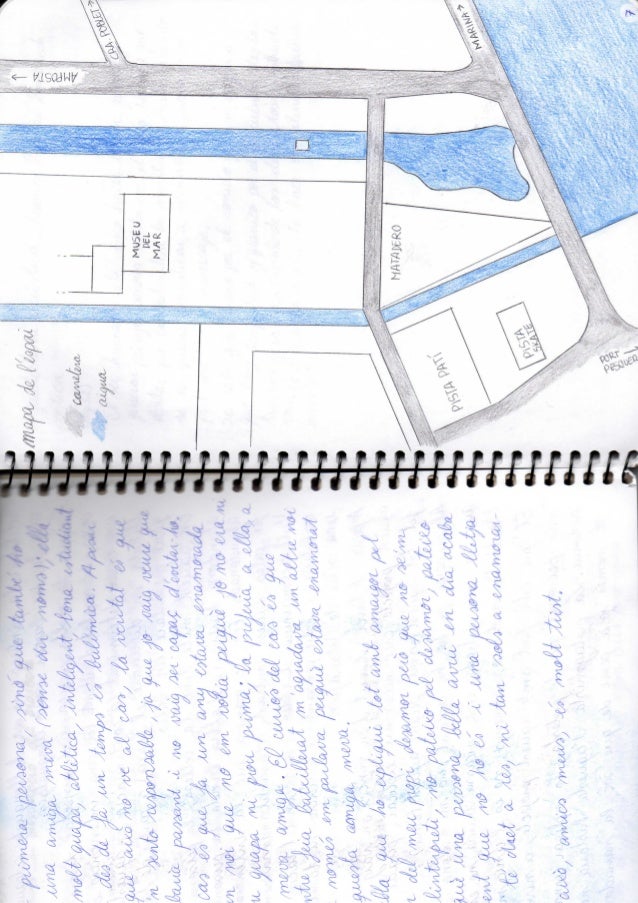 7
MARINA →
CRA POBLE →
AMPOSTA →
MUSEU
DEL
MAR
MATADERO
PISTA PATÍ
PISTA
SKATE
PORT
PESQUER →
Mapa de l'espai
carretera
aigua
primera persona, sinó que també ho
una amiga meva (sense dir noms); ella
molt guapa, atlètica, inteligent bona estudiant
des de fa un temps és bulímica. A pesar
que això no ve al cas, la veritat és que
'n sento responsable, ja que jo vaig veure que
passant i no vaig ser capaç d'evitar-ho.
cas és que fa un any estava enamorada
n noi que no em volia perquè jo no era ni
u guapa ni prou prima; la preferia a ella, a
meva amiga. El curiós del cas és que
ntre feia batxillerat m'agradava un altre noi
només en parlava perquè estava enamorat
questa amiga meva.
lla que ho expliqui tot amb amargor pel
r del meu propi desamor però que no se'm
linterpreti, no pateixo pel desamor, pateixo
què una persona bella avui en dia acaba
ent que no ho és i una persona lletja
te dret a res, ni tan sols a enamorar-
això, amics meus, és molt trist.